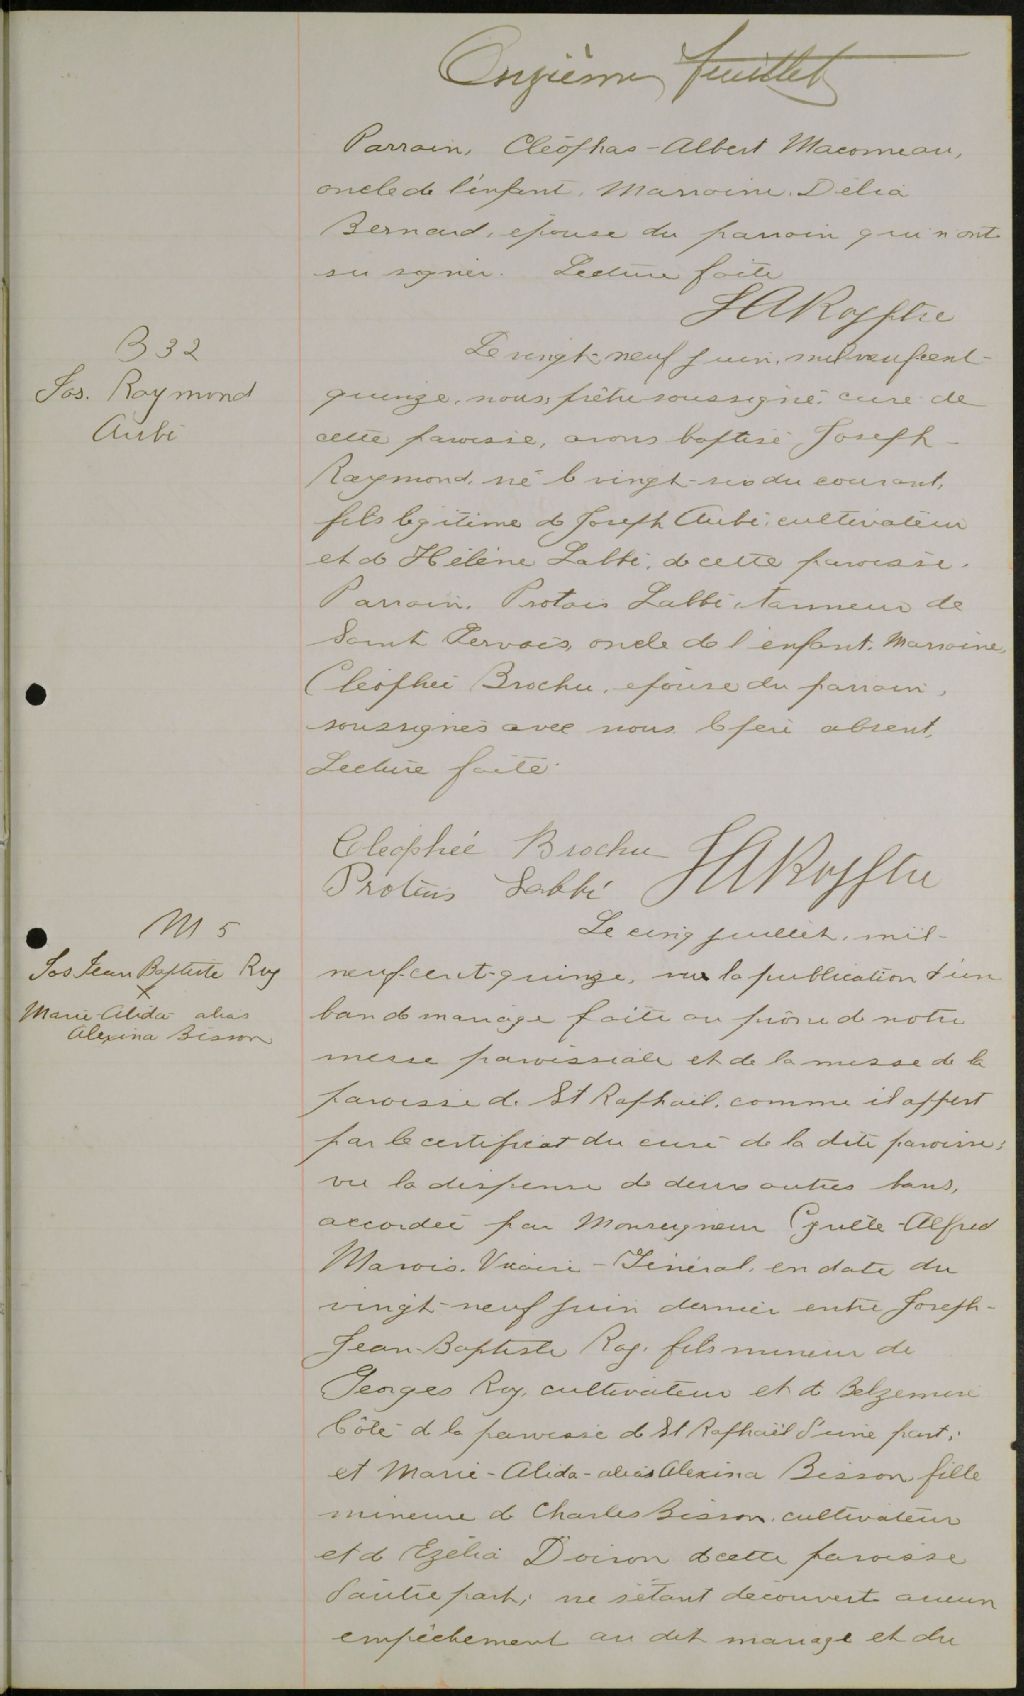 Onzième feuillet
Parrain, Cléophas-Albert Macomeau,
oncle de l'enfant. Marraine. Délia
Bernard, épouse du parrain qui n'ont
su signer. Lecture faite
J A Roy Ptre
B 32
Jos. Raymond
Aubé
Le vingt-neuf juin, mil neuf cent-
quinze, nous, prêtre soussigné, curé de
cette paroisse, avons baptisé Joseph-
Raymond, né le vingt-six du courant,
fils légitime de Joseph Aubé, cultivateur
et de Hélène Labbé, de cette paroisse.
Parrain. Protais Labbé, tanneur de
Saint Gervais, oncle de l'enfant. Marraine,
Cléophée Brochu, épouse du parrain,
soussignés avec nous, le père absent,
Lecture faite.
Cléophée Brochu
Protais Labbé
J A Roy Ptre
M 5
Jos Jean Baptiste Roy
x
Marie-Alida alias
Alexina Bisson
Le cinq juillet, mil-
neuf-cent-quinze, vu la publication d'un
ban de mariage faite au prône de notre
messe paroissiale et de la messe de la
paroisse de St Raphaël, comme il appert
par le certificat du curé de la dite paroisse;
vu la dispense de deux autres bans,
accordée par Monseigneur Cyrille-Alfred
Marois, Vicaire-Général, en date du
vingt-neuf juin dernier entre Joseph-
Jean-Baptiste Roy, fils mineur de
Georges Roy, cultivateur et de Belzemire
Côté de la paroisse de St Raphaël d'une part;
et Marie-Alida-alias Alexina Bisson, fille
mineure de Charles Bisson, cultivateur
et de Ezélia Doiron de cette paroisse
d'autre part; ne s'étant découvert aucun
empêchement au dit mariage et du